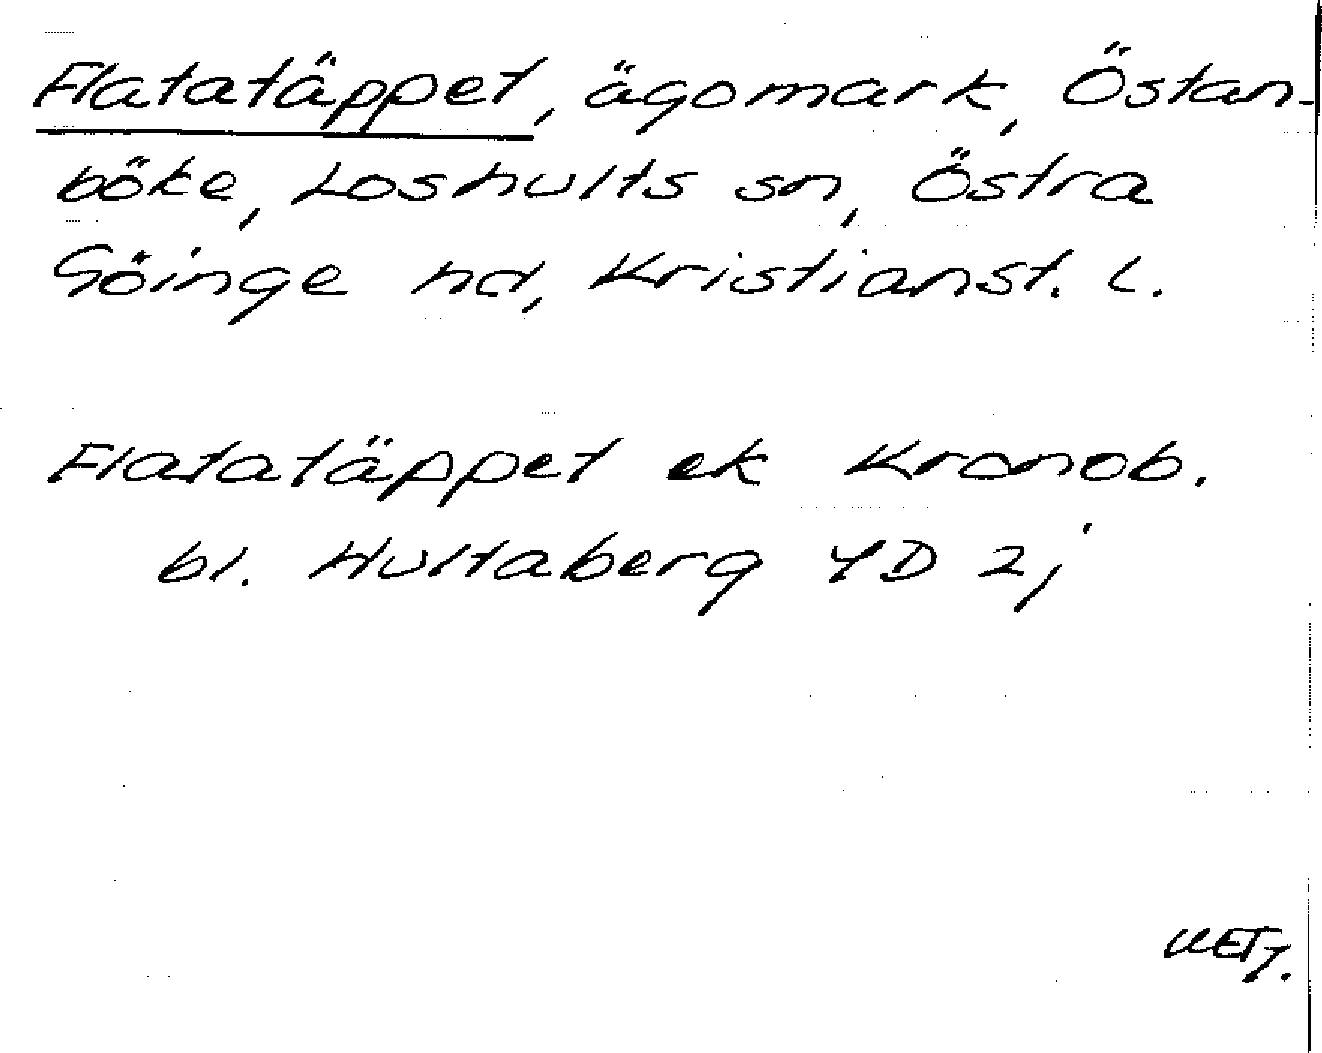 Flatatäppet, ägomark, Östan-
böke, Loshults sn, Östra
Göinge hd, Kristianst. l.
Flatatäppet ek Kronob.
bl. Hultaberg 4D 2j